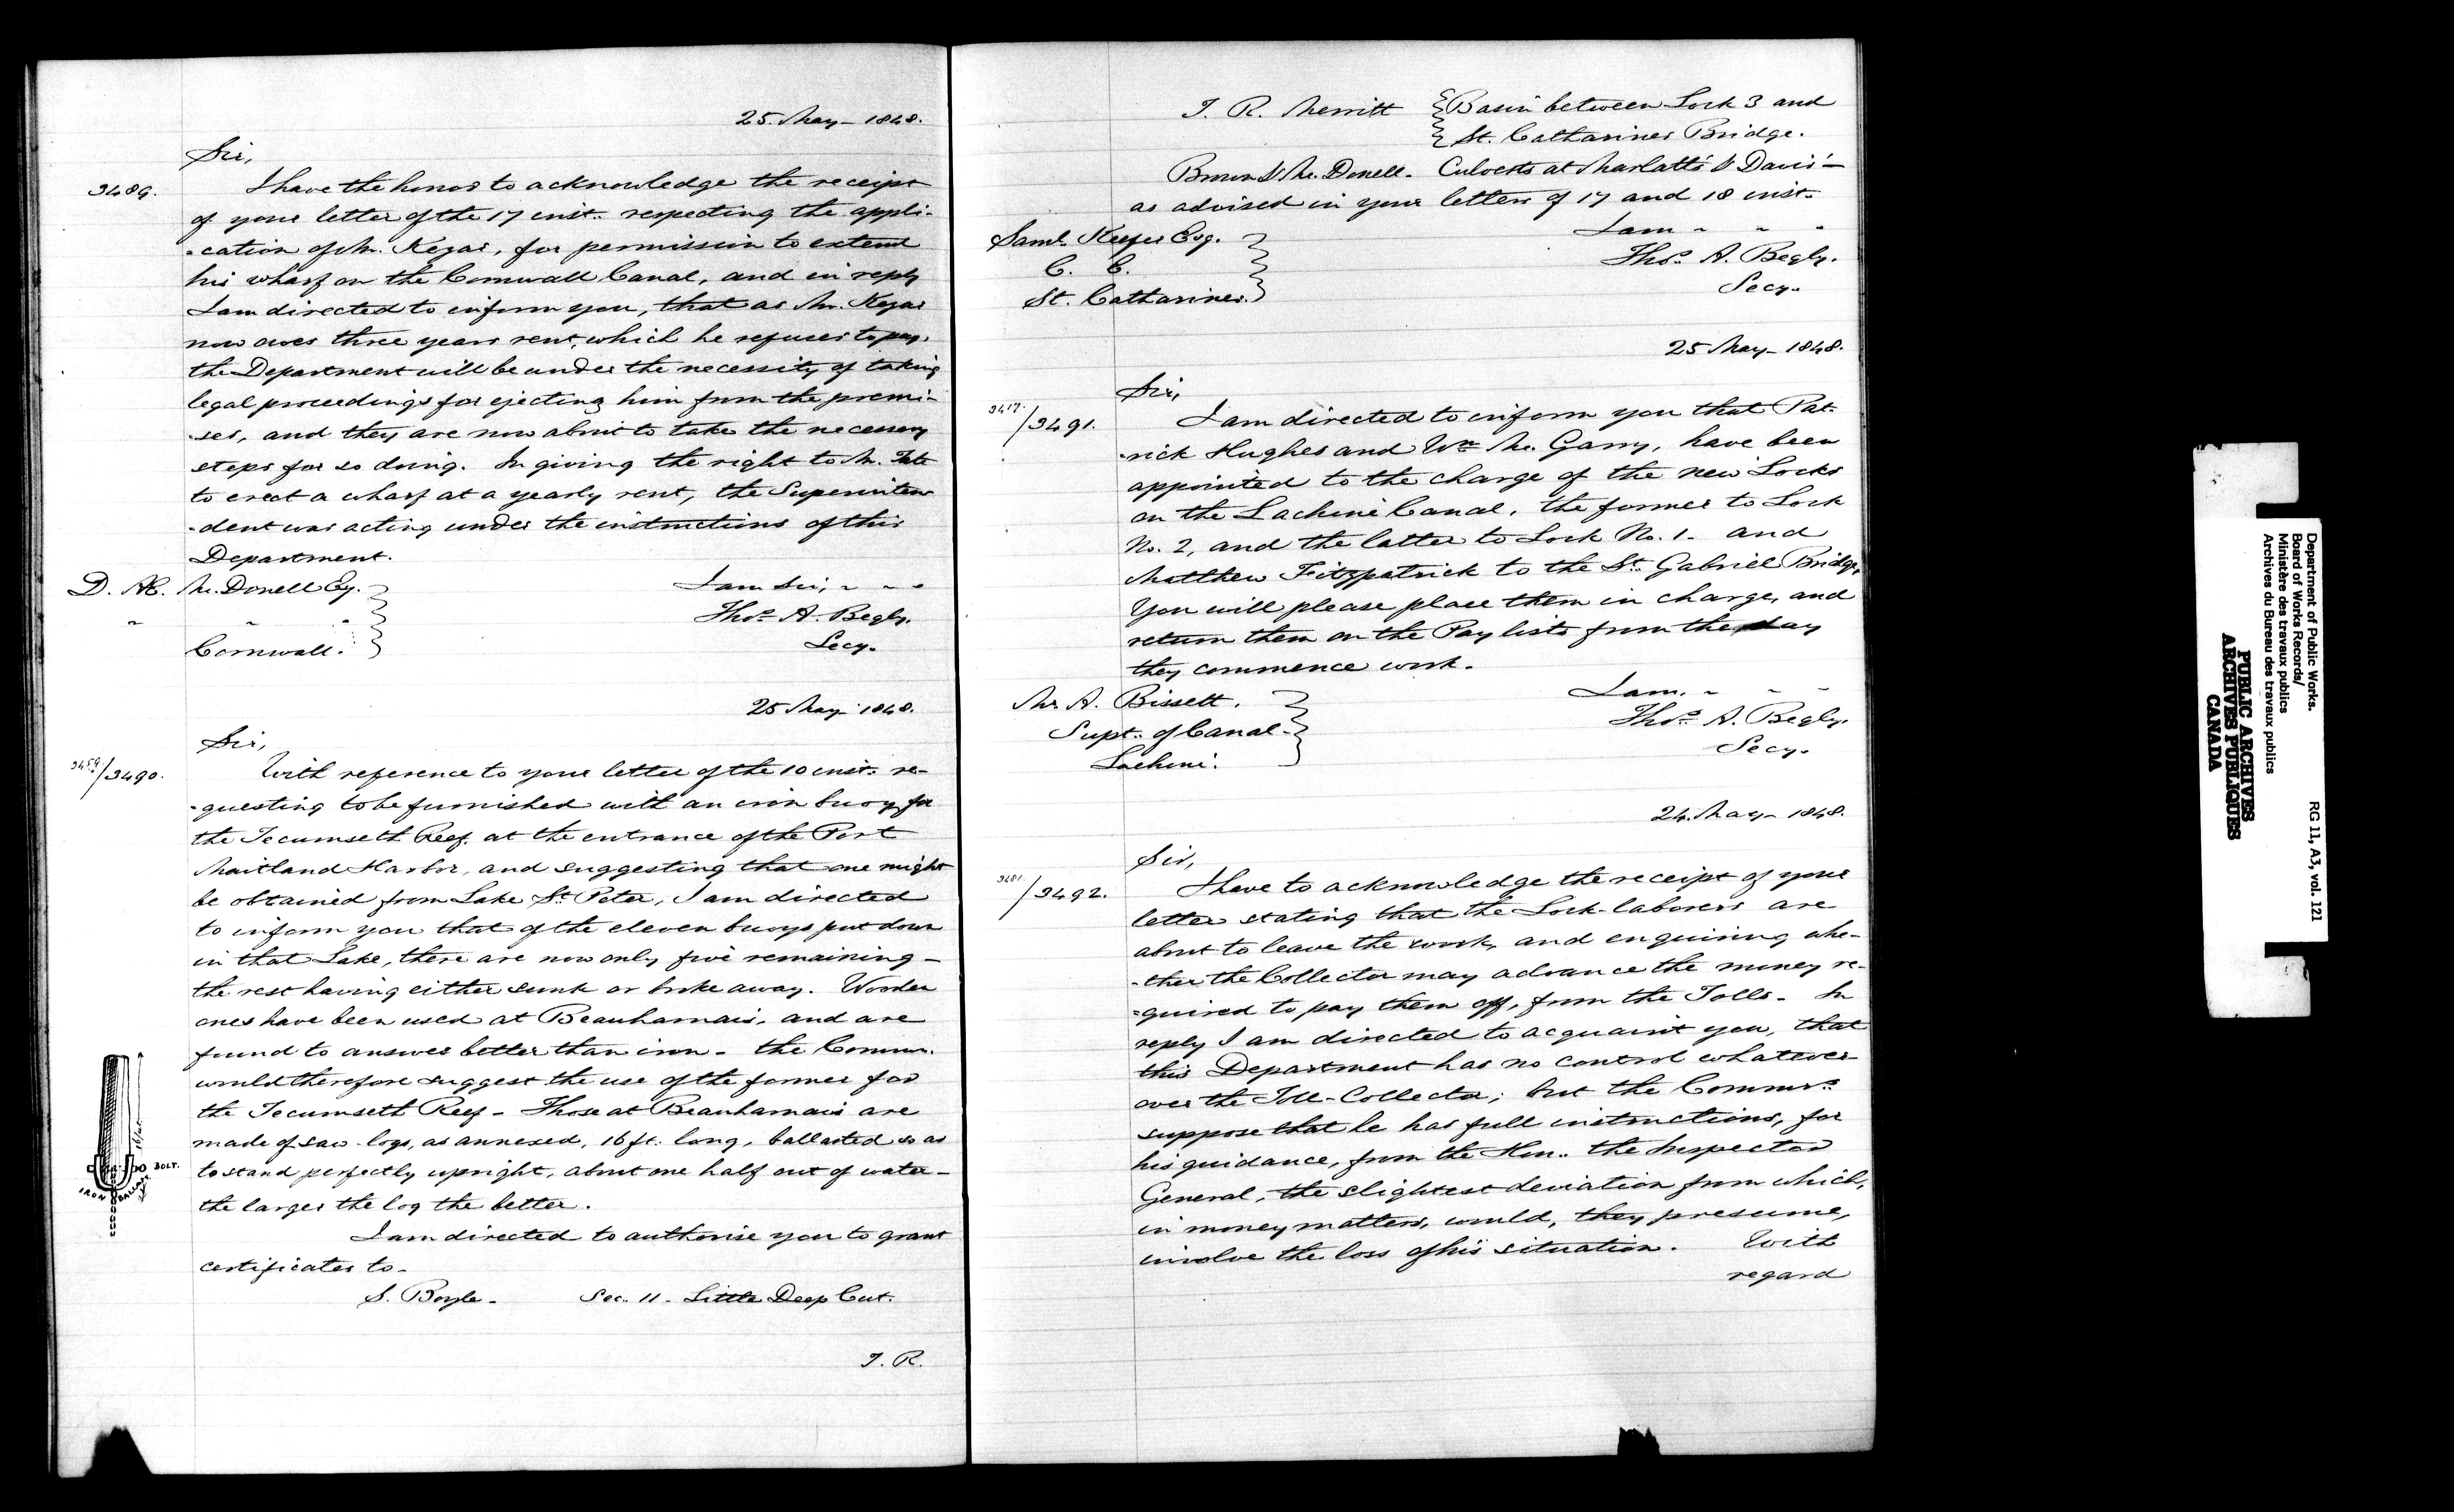 25. May - 1848.
Sir,
3489. I have the honor to acknowledge the receipt
of your letter of the 17 inst. respecting the appli-
-cation of Mr. Kezar, for permission to extend
his wharf on the Cornwall Canal, and in reply
I am directed to inform you, that as Mr. Kezar
now owes three years rent, which he refuses to pay,
the Department will be under the necessity of taking
legal proceedings for ejecting him from the premi-
-ses, and they are now about to take the necessary
steps for so doing. In giving the right to Mr. Tate
to erect a wharf at a yearly rent, the Superinten
-dent was acting under the instructions of this
Department.
D. Æ. Mc. Donell Esq. I am Sir, " " "
" " " Thos. A. Begly.
Cornwall. Secy.
25 May 1848.
Sir,
3459/3490. With reference to your letter of the 10 inst. re-
-questing to be furnished with an iron buoy for
the Tecumseth Reef, at the entrance of the Port
Maitland Harbor, and suggesting that one might
be obtained from Lake St. Peter, I am directed
to inform you that of the eleven buoys put down
in that Lake, there are now only five remaining -
the rest having either sunk or broke away. Wooden
ones have been used at Beauharnais, and are
found to answer better than iron - the Commrs.
would therefore suggest the use of the former for
the Tecumseth Reef - Those at Beauharnais are
made of saw-logs, as annexed, 16 ft. long, ballasted so as
to stand perfectly upright, about one half out of water -
the larger the log the better.
16 feet
BOLT.
IRON BALLAST
I am directed to authorise you to grant
certificates to -
S. Boyle - Sec. 11 - Little Deep Cut.
T. R.
T. R. Merritt { Basin between Lock 3 and
{ St. Catharines Bridge.
Brown & Mc. Donell - Culverts at Marlatt's & Davis' -
as advised in your letters of 17 and 18 inst.
Saml. Keefer Esq. I am " " "
C. E. Thos. A. Begly.
St. Catharines. Secy.
25 May - 1848.
Sir,
3417./3491. I am directed to inform you that Pat-
-rick Hughes and Wm. Mc. Garry, have been
appointed to the charge of the new Locks
on the Lachine Canal, the former to Lock
No. 2, and the latter to Lock No. 1 - and
Matthew Fitzpatrick to the St. Gabriel Bridge,
You will please place them in charge, and
return them on the Pay lists from the day
they commence work.
Mr. A. Bissett. I am. " " "
Supt. of Canal - Thos. A. Begly.
Lachine. Secy.
24. May - 1848.
Sir,
3481./3492. I have to acknowledge the receipt of your
letter stating that the Lock-laborers are
about to leave the work, and enquiring whe-
-ther the Collector may advance the money re-
-quired to pay them off, from the Tolls - In
reply I am directed to acquaint you, that
this Department has no control whatever
over the Toll-Collector; but the Commrs.
suppose that he has full instructions, for
his guidance, from the Hon. the Inspector
General, the slightest deviation from which,
in money matters, would, they presume,
involve the loss of his situation. With
regard
Department of Public Works. RG 11, A3, vol. 121
Board of Works Records/
Ministère des travaux publics
Archives du Bureau des travaux publics
PUBLIC ARCHIVES
ARCHIVES PUBLIQUES
CANADA